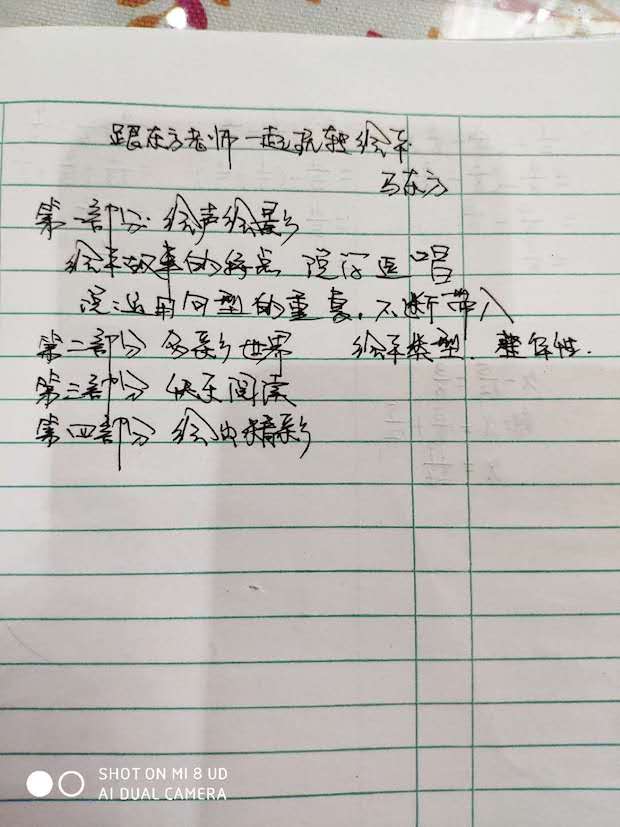 跟东方老师一起玩转绘本
马东方
第一部分：绘声绘影
绘本故事的特点 说 唱
运用句型的重复，不断带入
第二部分 多彩世界 绘本类型．整体性．
第三部分 快乐阅读
第四部分 绘出精彩
SHOT ON MI 8 UD
AI DUAL CAMERA